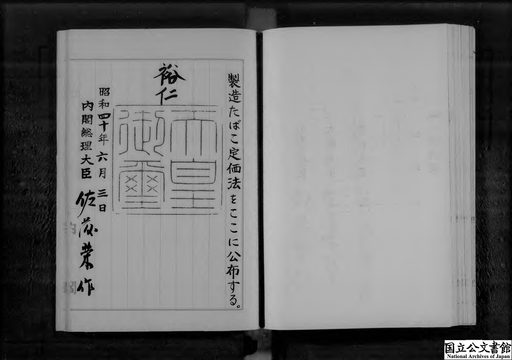 製造たばこ定価法をここに公布する。
裕仁
天皇御璽
昭和四十年六月三日
内閣総理大臣 佐藤榮作
国立公文書館
National Archives of Japan